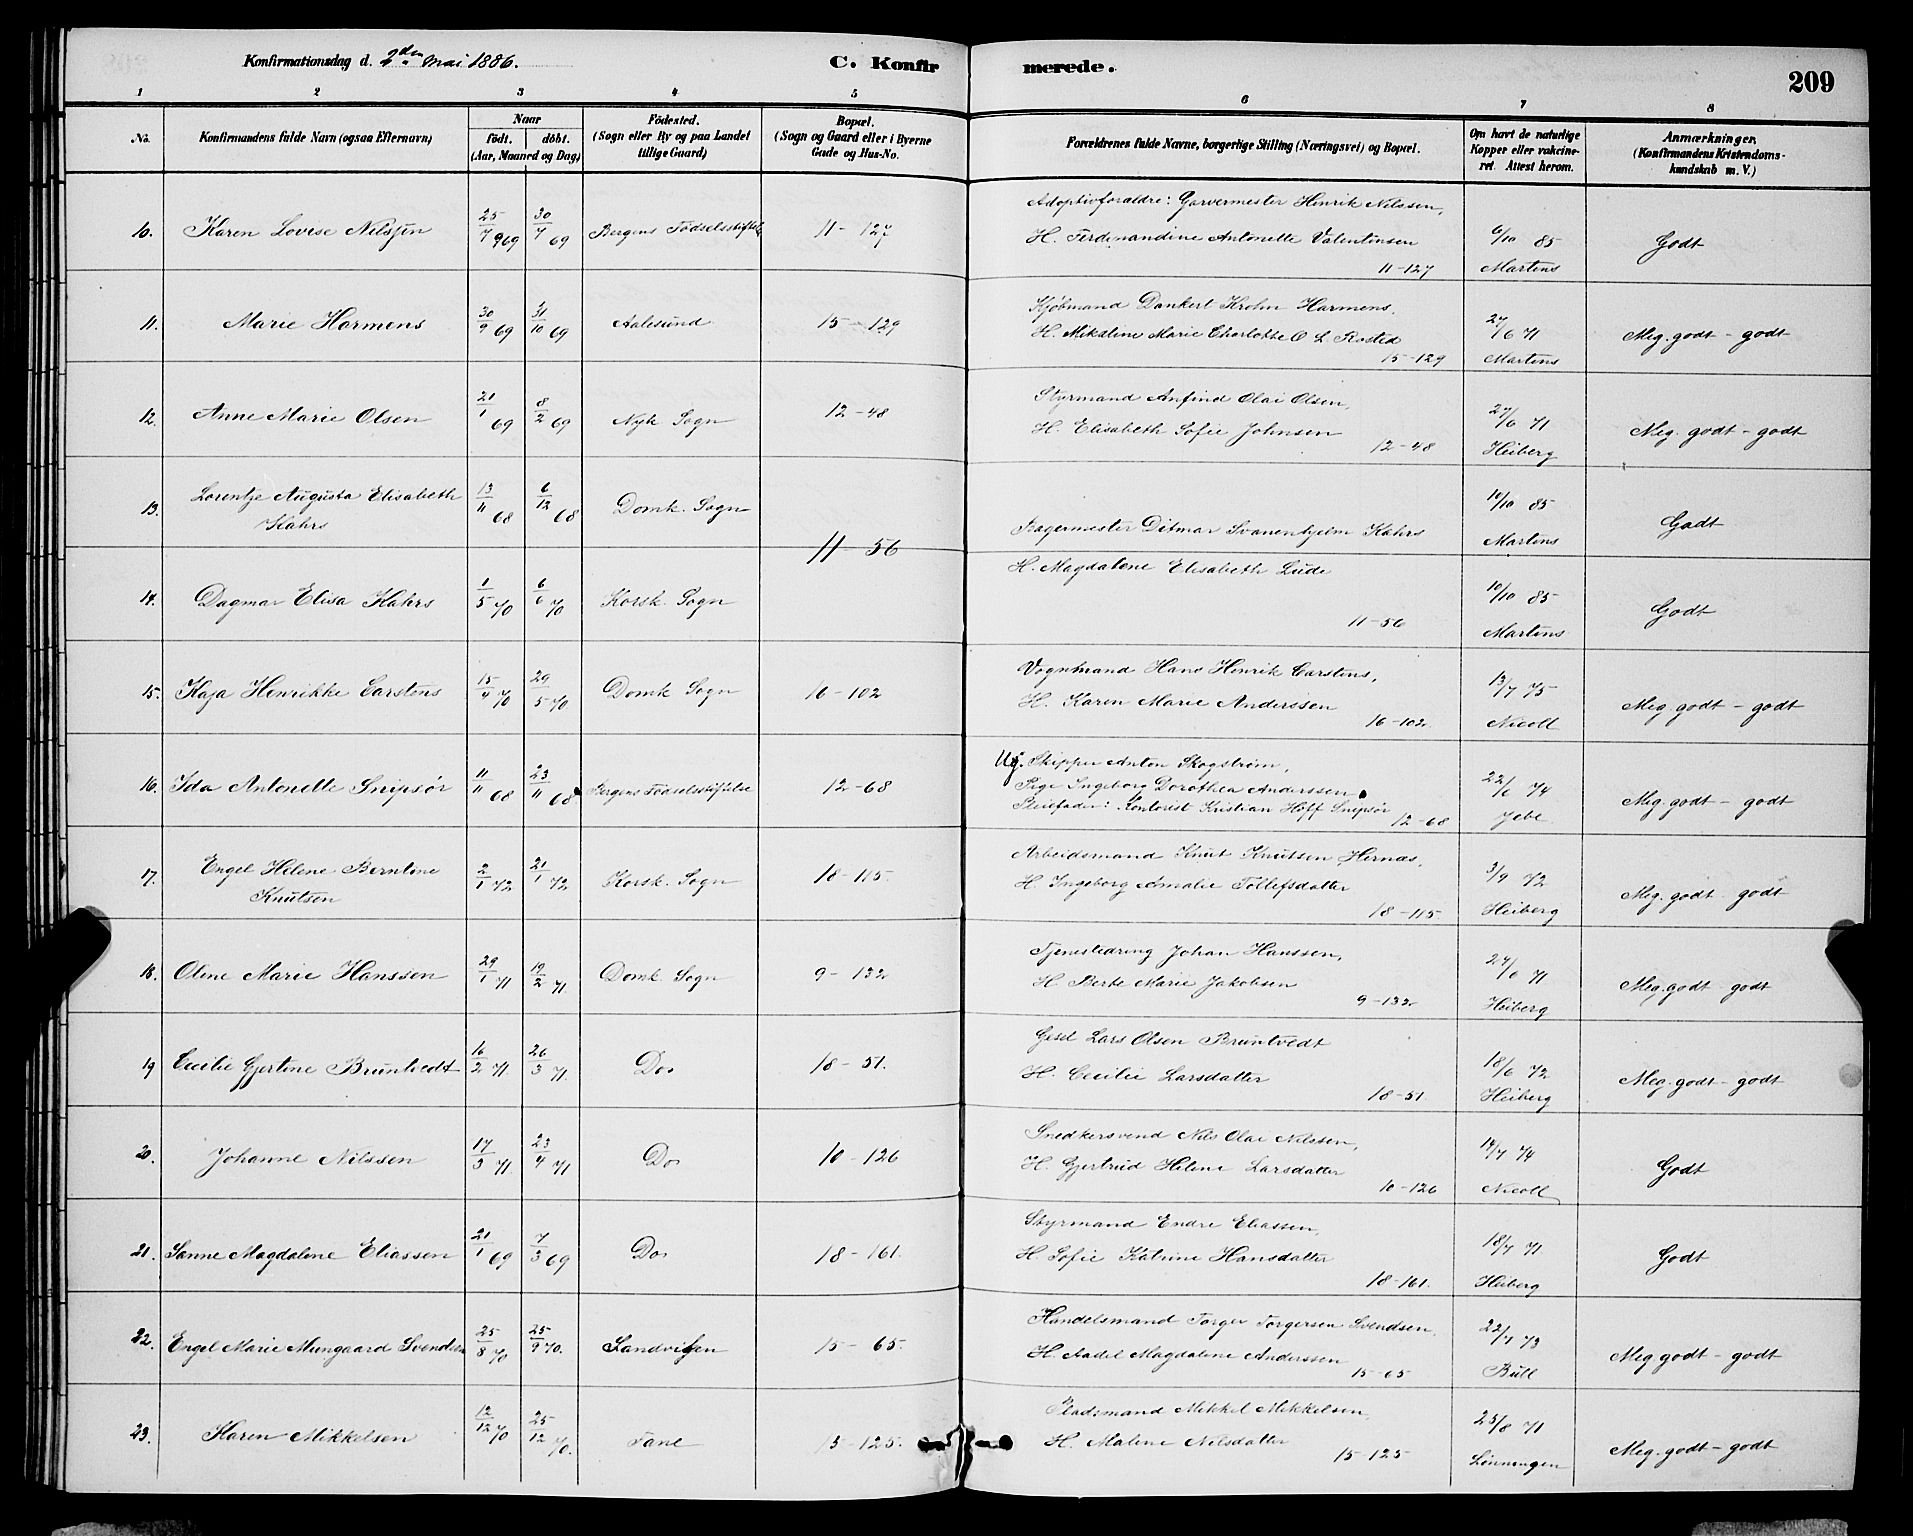 Konfirmationsdag d. 2den Mai 1886.
C. Konfirmerede.
209
1 2 3 4 5 6 7 8
No.
Konfirmandens fulde Navn (ogsaa Efternavn)
Naar
födt. döbt.
(Aar, Maaned og Dag)
Födested.
(Sogn eller By og paa Landet
tillige Gaard)
Bopæl.
(Sogn og Gaard eller i Byerne
Gade og Hus-No.
Forældrenes fulde Navne, borgerlige Stilling (Næringsvei) og Bopæl.
Om havt de naturlige
Kopper eller vakcine-
ret. Attest herom.
Anmærkninger.
(Konfirmandens Kristendoms-
kundskab m. V.)
10. Karen Lovise Nilssen 25/7 69 30/7 69 Bergens Födselsstiftelse 11-127
Adoptivforældre: Garvermester Henrik Nilssen,
H. Ferdinandine Antonette Valentinsen
11-127
6/10 85
Martens
Godt
11. Marie Harmens 30/9 69 31/10 69 Aalesund 15-129
Kjöbmand Dankert Krohn Harmens,
H. Mikaline Marie Charlotte O L Rosted
15-129
27/6 71
Martens
Meg. godt - godt
12. Anne Marie Olsen 21/1 69 8/2 69 Nyk. Sogn 12-48
Styrmand Anfind Olai Olsen,
H. Elisabeth Sofie Johnsen
12-48
27/6 71
Heiberg
Meg. godt - godt
13. Lorentze Augusta Elisabeth
Kahrs
13/11 68 6/12 68 Domk. Sogn
11-56
Bagermester Ditmar Svanenhjelm Kahrs
10/10 85
Martens
Godt
14. Dagmar Elisa Kahrs 1/5 70 6/6 70 Korsk. Sogn
H. Magdalene Elisabeth Lude
11-56
10/10 85
Martens
Godt
15. Kaja Henrikke Carstens 15/4 70 29/5 70 Domk Sogn 16-102
Vognmand Hans Henrik Carstens,
H. Karen Marie Anderssen
16-102.
13/7 75
Nicoll
Meg. godt - godt
16. Ida Antonette Snipsör 11/11 68 23/11 68 Bergens Födselsstiftelse 12-68
Ug. Skipper Anton Skogström,
Pige Ingeborg Dorothea Anderssen
Pleiefader: Kontorist Kristian Hoff Snipsör
12-68
22/6 74
Jebe
Meg. godt - godt
17. Engel Helene Berntine
Knutsen
2/1 72 21/1 72 Korsk. Sogn 18-115.
Arbeidsmand Knut Knutsen Hernæs,
H. Ingeborg Amalie Tollefsdatter
18-115.
3/9 72
Heiberg
Meg. godt - godt
18. Oline Marie Hanssen 29/1 71 19/2 71. Domk. Sogn 9-132
Tjenestedreng Johan Hanssen,
H. Berte Marie Jakobsen
9-132
27/6 71
Heiberg
Meg. godt godt
19 Cecilie Gjertine Bruntvedt 16/2 71. 26/3 71. Do. 18-51.
Gesel Lars Olsen Bruntvedt
H. Cecilie Larsdatter
18-51.
18/6 72
Heiberg
Meg. godt - godt
20. Johanne Nilssen 17/3 71 23/4 71 Do. 10-126
Snedkersvend Nils Olai Nilssen,
H. Gjertrud Helene Larsdatter
10-126
14/7 74
Nicoll
Godt
21. Sanne Magdalene Eliassen 21/1 69 7/3 69 Do. 18-161.
Styrmand Endre Eliassen,
H. Sofie Katrine Hansdatter
18-161.
18/7 71
Heiberg
Godt
22. Engel Marie Mungaard Svendsen 25/8 70 25/9 70. Sandviken 15-65.
Handelsmand Torger Torgersen Svendsen,
H. Aadel Magdalene Anderssen
15-65
22/7 73
Bull
Meg. godt - godt
23. Karen Mikkelsen 12/12 70 25/12 70. Fane 15-125.
Pladsmand Mikkel Mikkelsen,
H. Malene Nilsdatter
15-125
25/8 71
Lönningen
Meg. godt - godt